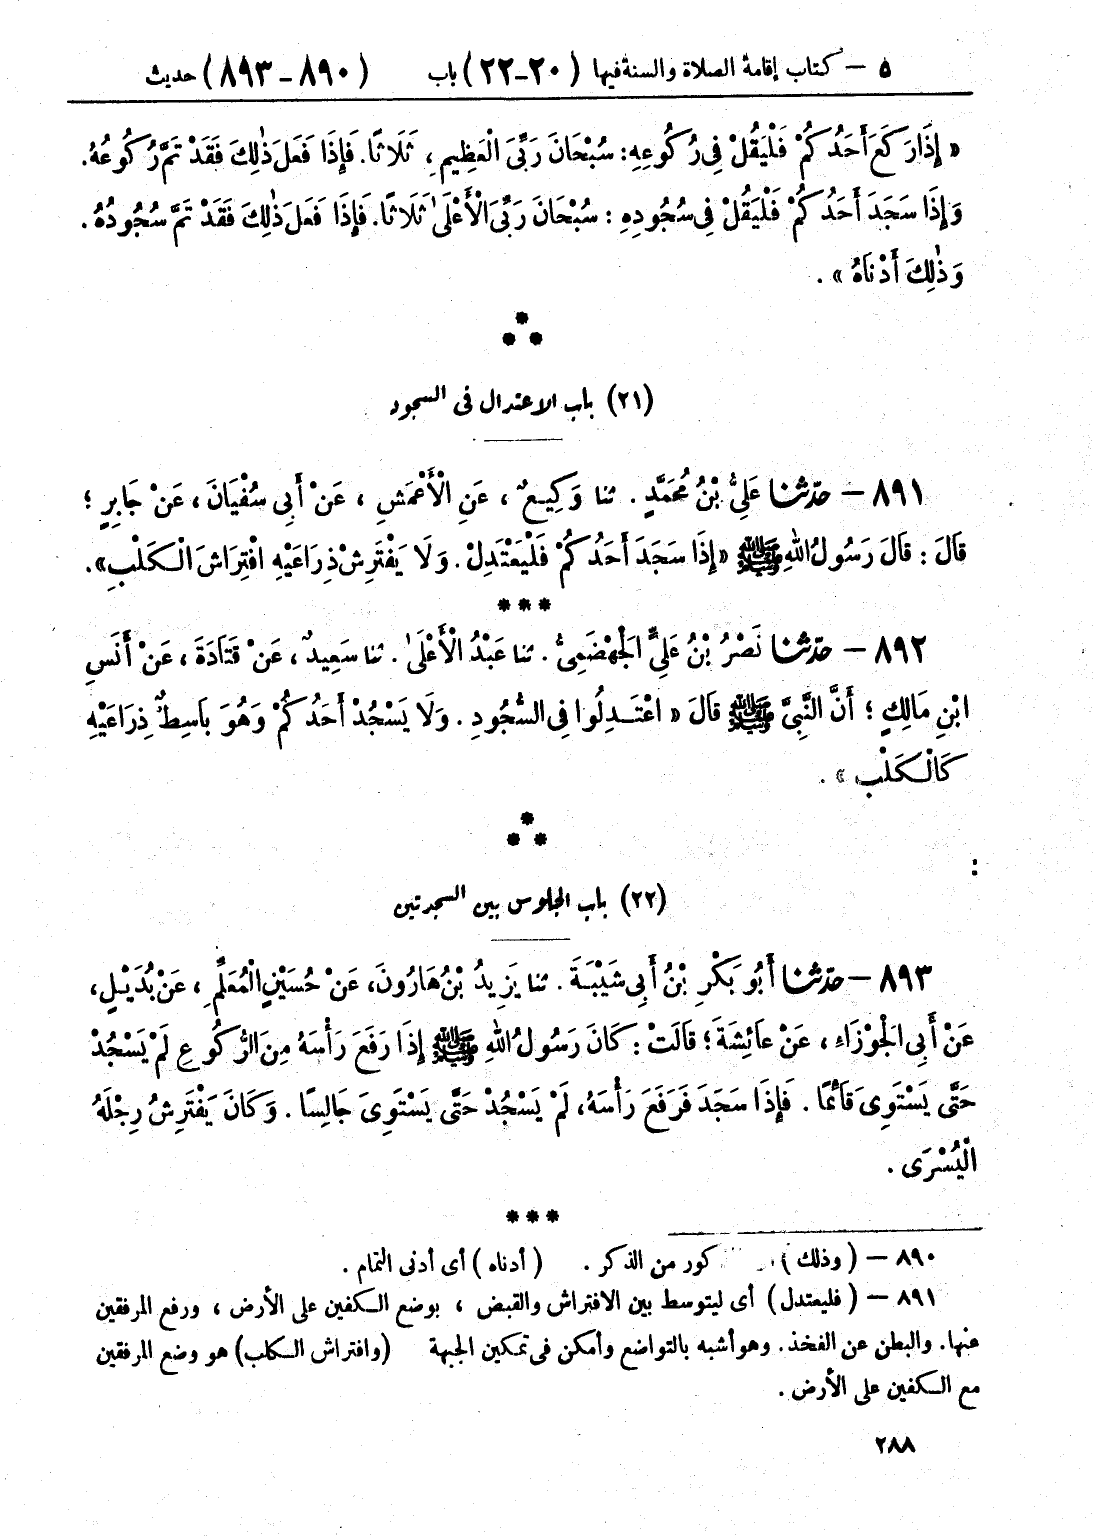 ٥ – كتاب إقامة الصلاة والسنة فيها (٢٠-٢٢) باب (٨٩٠-٨٩٣) حديث
« إِذَا رَكَعَ أَحَدُكُمْ فَلْيَقُلْ فِي رُكُوعِهِ: سُبْحَانَ رَبِّيَ الْعَظِيمِ، ثَلَاثًا. فَإِذَا فَعَلَ ذٰلِكَ فَقَدْ تَمَّ رُكُوعُهُ.
وَإِذَا سَجَدَ أَحَدُكُمْ فَلْيَقُلْ فِي سُجُودِهِ : سُبْحَانَ رَبِّيَ الْأَعْلَىٰ ثَلَاثًا. فَإِذَا فَعَلَ ذٰلِكَ فَقَدْ تَمَّ سُجُودُهُ.
وَذٰلِكَ أَدْنَاهُ » .
***
(٢١) باب الاعتدال فى السجود
٨٩١ – حدّثنا عَلِيُّ بْنُ مُحَمَّدٍ . ثنا وَكِيعٌ ، عَنِ الْأَعْمَشِ ، عَنْ أَبِي سُفْيَانَ ، عَنْ جَابِرٍ ؛
قَالَ : قَالَ رَسُولُ اللهِ ﷺ « إِذَا سَجَدَ أَحَدُكُمْ فَلْيَعْتَدِلْ . وَلَا يَفْتَرِشْ ذِرَاعَيْهِ افْتِرَاشَ الْكَلْبِ».
***
٨٩٢ – حدّثنا نَصْرُ بْنُ عَلِيٍّ الْجَهْضَمِيُّ . ثنا عَبْدُ الْأَعْلَىٰ . ثنا سَعِيدٌ ، عَنْ قَتَادَةَ ، عَنْ أَنَسِ
ابْنِ مَالِكٍ ؛ أَنَّ النَّبِيَّ ﷺ قَالَ « اعْتَدِلُوا فِي السُّجُودِ . وَلَا يَسْجُدْ أَحَدُكُمْ وَهُوَ بَاسِطٌ ذِرَاعَيْهِ
كَالْكَلْبِ » .
***
(٢٢) باب الجلوس بين السجدتين
٨٩٣ – حدّثنا أَبُو بَكْرِ بْنُ أَبِي شَيْبَةَ . ثنا يَزِيدُ بْنُ هَارُونَ، عَنْ حُسَيْنٍ الْمُعَلِّمِ ، عَنْ بُدَيْلٍ،
عَنْ أَبِي الْجَوْزَاءِ ، عَنْ عَائِشَةَ ؛ قَالَتْ : كَانَ رَسُولُ اللهِ ﷺ إِذَا رَفَعَ رَأْسَهُ مِنَ الرُّكُوعِ لَمْ يَسْجُدْ
حَتَّى يَسْتَوِيَ قَائِمًا . فَإِذَا سَجَدَ فَرَفَعَ رَأْسَهُ، لَمْ يَسْجُدْ حَتَّى يَسْتَوِيَ جَالِسًا . وَكَانَ يَفْتَرِشُ رِجْلَهُ
الْيُسْرَى .
***
٨٩٠ – ( وذلك ) كور من الذكر . ( أدناه ) أى أدنى التمام .
٨٩١ – ( فليعتدل ) أى ليتوسط بين الافتراش والقبض ، بوضع الكفين على الأرض ، ورفع المرفقين
عنها. والبطن عن الفخذ. وهو أشبه بالتواضع وأمكن فى تمكين الجبهة (وافتراش الكلب) هو وضع المرفقين
مع الكفين على الأرض .
٢٨٨